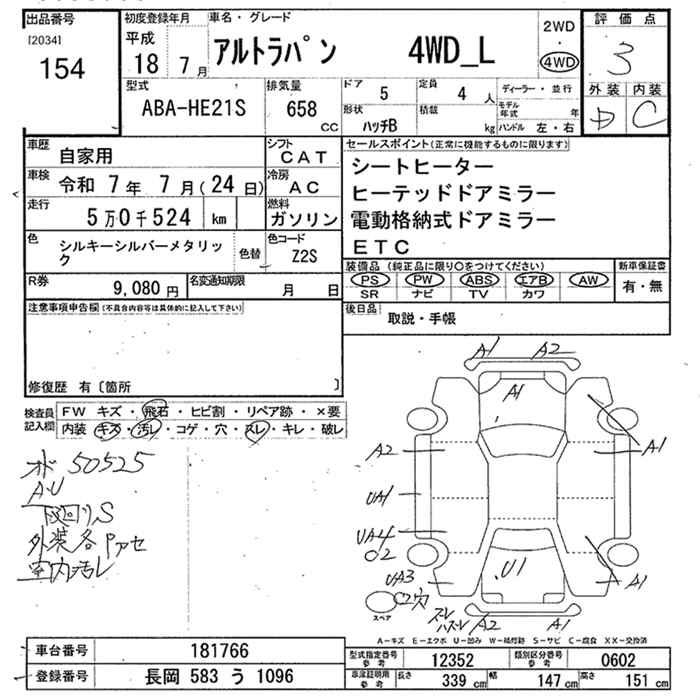 出品番号
[2034]
154
初度登録年月
平成
18 7 月
車名・グレード
アルトラパン 4WD_L
2WD
4WD
評価点
3
外装 内装
D C
型式
ABA-HE21S
排気量
658 CC
ドア 5
定員 4 人
形状 ハッチB
積載 kg
ディーラー・並行
モデル年式 年
ハンドル 左・右
車歴 自家用
シフト CAT
車検 令和 7年 7月(24日)
冷房 AC
走行 5万0千524 km
燃料 ガソリン
色 シルキーシルバーメタリック
色替
色コード Z2S
R券 9,080 円
名変通知期限 月 日
セールスポイント(正常に機能するものに限ります)
シートヒーター
ヒーテッドドアミラー
電動格納式ドアミラー
ETC
装備品 (純正品に限り○をつけてください)
PS PW ABS エアB AW
SR ナビ TV カワ
新車保証書
有・無
後日品
取説・手帳
注意事項申告欄(不具合内容等は具体的に記入して下さい)
修復歴 有〔箇所 〕
検査員記入欄
FW キズ・飛石・ヒビ割・リペア跡・×要
内装 キズ・汚レ・コゲ・穴・スレ・キレ・破レ
オド 50525
A・U
下回りS
外装各Pアセ
室内汚レ
A1 A2
A1
A2
A1
UA1
UA4
02
UA3
C2穴
U1
A1
スレ
ハスレ
A2 A1
スペア
A-キズ E-エクボ U-凹み W-補修跡 S-サビ C-腐食 XX-交換済
車台番号 181766
登録番号 長岡 583 う 1096
型式指定番号 参考 12352
類別区分番号 参考 0602
車庫証明用 参考
長さ 339 cm
幅 147 cm
高さ 151 cm